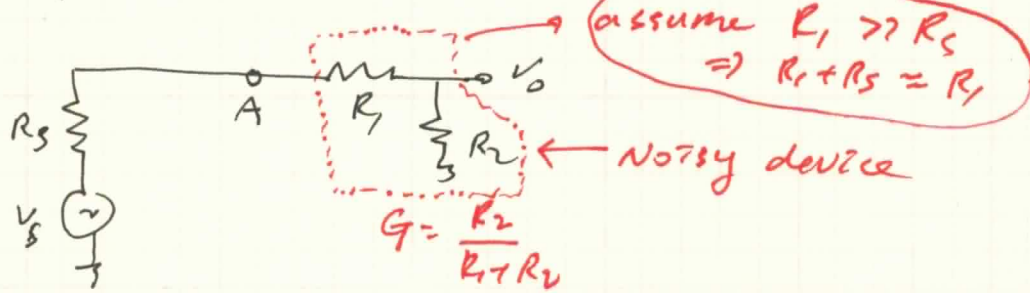 assume R₁ >> Rs
⇒ R₁ + Rs ≈ R₁
Vo
A
R₁
Rs
R₂
← Noisy device
Vs
~
G = R₂ / (R₁ + R₂)